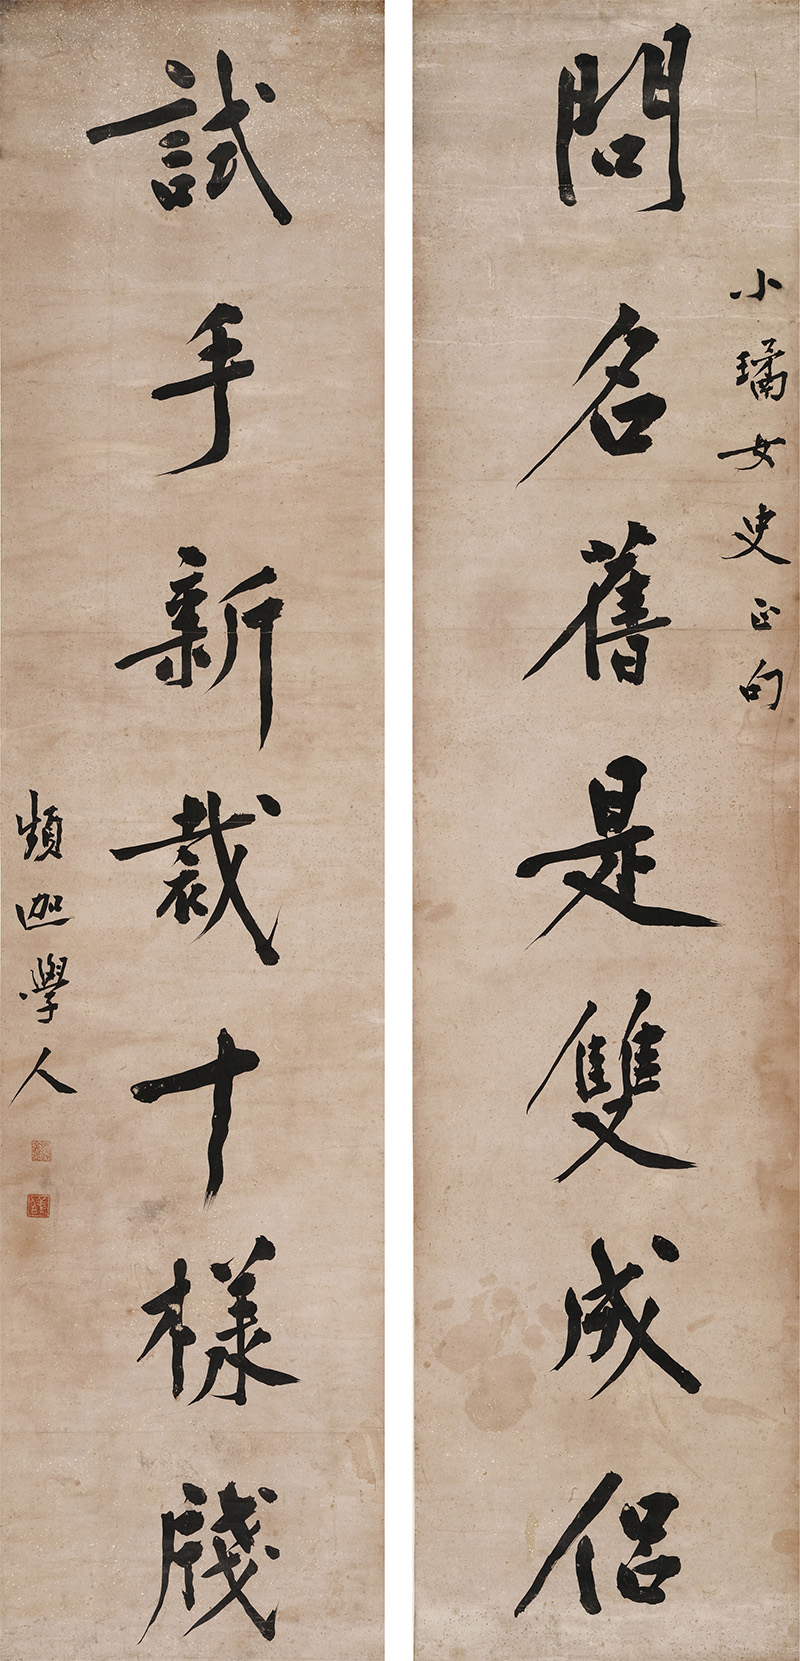 小璚女史正句
問名舊是雙成侶
試手新裁十樣牋
頻迦學人